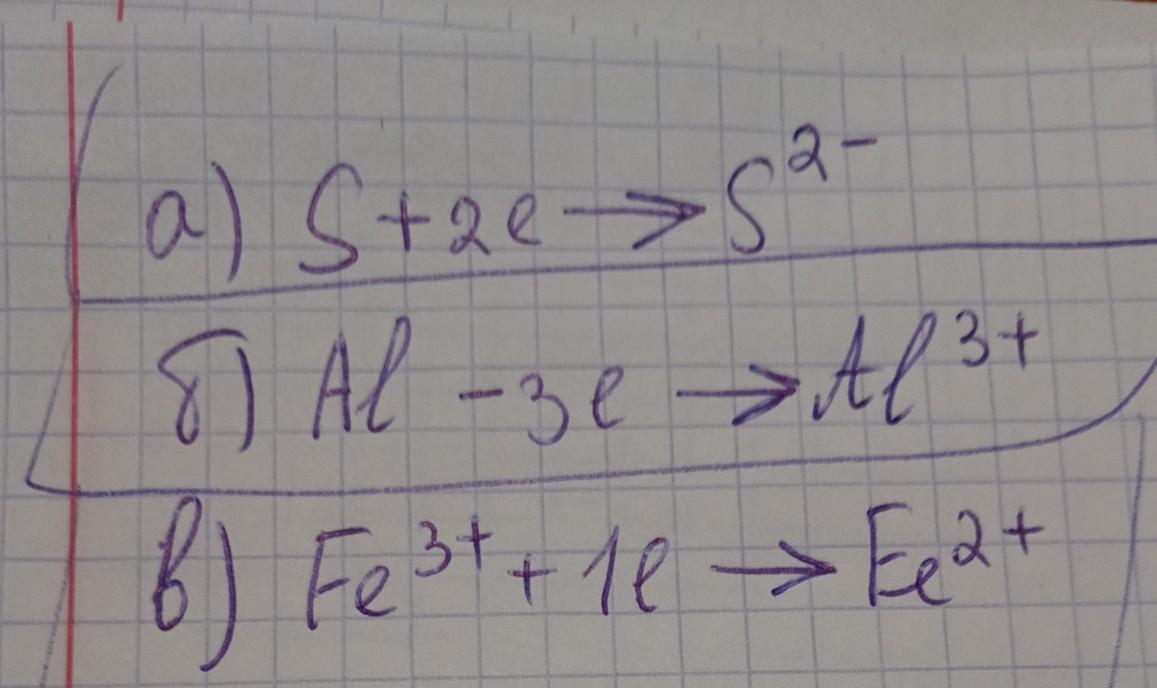 а) S + 2e → S²⁻
б) Al - 3e → Al³⁺
в) Fe³⁺ + 1e → Fe²⁺